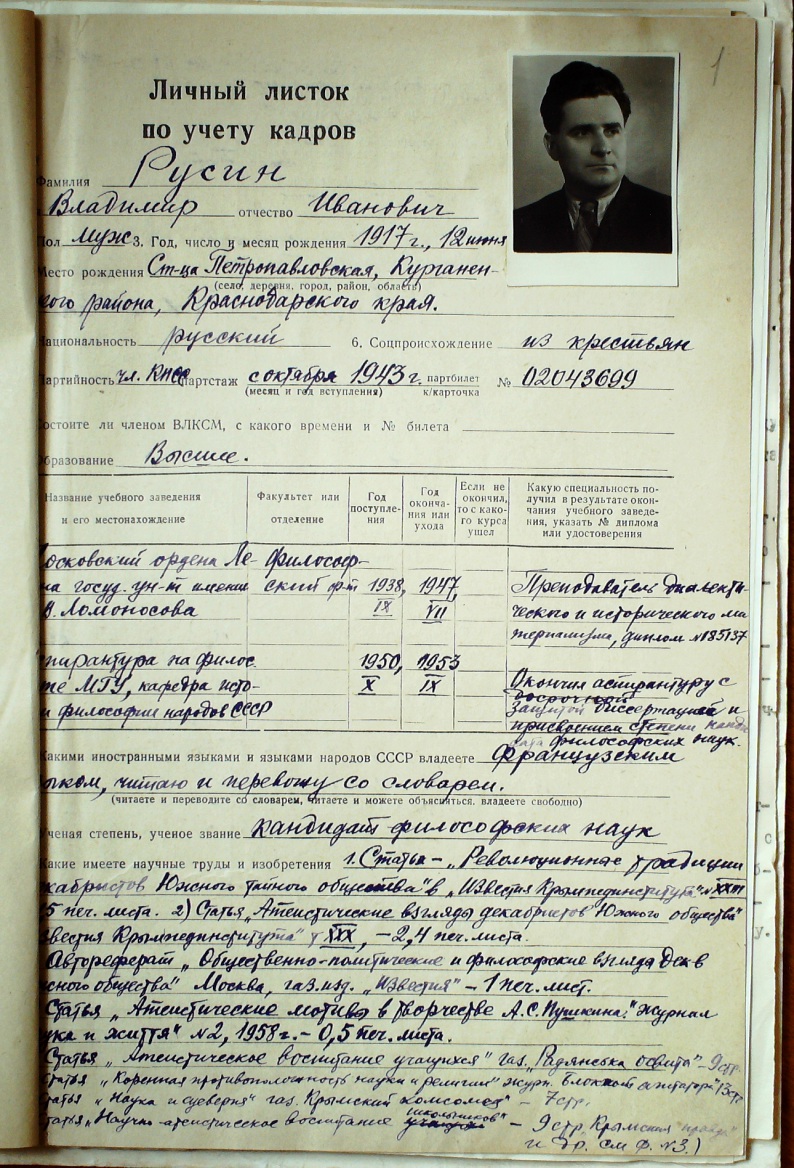 1
Личный листок
по учету кадров
Фамилия Русин
Владимир отчество Иванович
Пол муж 3. Год, число и месяц рождения 1917 г., 12 июня
Место рождения Ст-ца Петропавловская, Курганен-
(село, деревня, город, район, область)
кого района, Краснодарского края.
Национальность русский 6. Соцпроисхождение из крестьян
Партийность чл. КПСС партстаж с октября 1943 г. партбилет № 02043699
(месяц и год вступления) к/карточка
состоите ли членом ВЛКСМ, с какого времени и № билета
Образование Высшее.
Название учебного заведения и его местонахождение
Факультет или отделение
Год поступле-
ния
Год оконча-
ния или
ухода
Если не
окончил,
то с како-
го курса
ушел
Какую специальность по-
лучил в результате окон-
чания учебного заведе-
ния, указать № диплома
или удостоверения
осковский ордена Ле- Философ-
на госуд. ун-т имени ский ф-т 1938, 1947,
В. Ломоносова IX VII
Преподаватель диалекти-
ческого и исторического ма
териализма, диплом №185137
спирантура на филос. 1950, 1953
те МГУ, кафедра исто- X IX
и философии народов СССР
Окончил аспирантуру с
досрочной
защитой диссертации и
присвоением степени канди
дата философских наук.
Какими иностранными языками и языками народов СССР владеете Французским
языком, читаю и перевожу со словарем.
(читаете и переводите со словарем, читаете и можете объясняться, владеете свободно)
Ученая степень, ученое звание кандидат философских наук
Какие имеете научные труды и изобретения 1. Статья – „Революционные традиции
кабристов Южного тайного общества" в „Известия Крымпединститута" № XXIII
5 печ. листа. 2) Статья „Атеистические взгляды декабристов Южного общества"
звестия Крымпединститута" т XXX, – 2,4 печ. листа.
Автореферат „Общественно-политические и философские взгляды дек-в
жного общества" Москва, газ. изд. „Известия" – 1 печ. лист.
Статья „Атеистические мотивы в творчестве А.С. Пушкина." журнал
ука и життя" №2, 1958 г. – 0,5 печ. листа.
Статья „Атеистическое воспитание учащихся" газ. „Радянська освита" – 9 стр.
татья „Коренная противоположность науки и религии" журн. Блокнот агитатора" 13 стр
татья „Наука и суеверия" газ. Крымский комсомол" – 7 стр.
татья „Научно-атеистическое воспитание школьников" – 9 стр. Крымская правда"
и др. см ф. №3.)